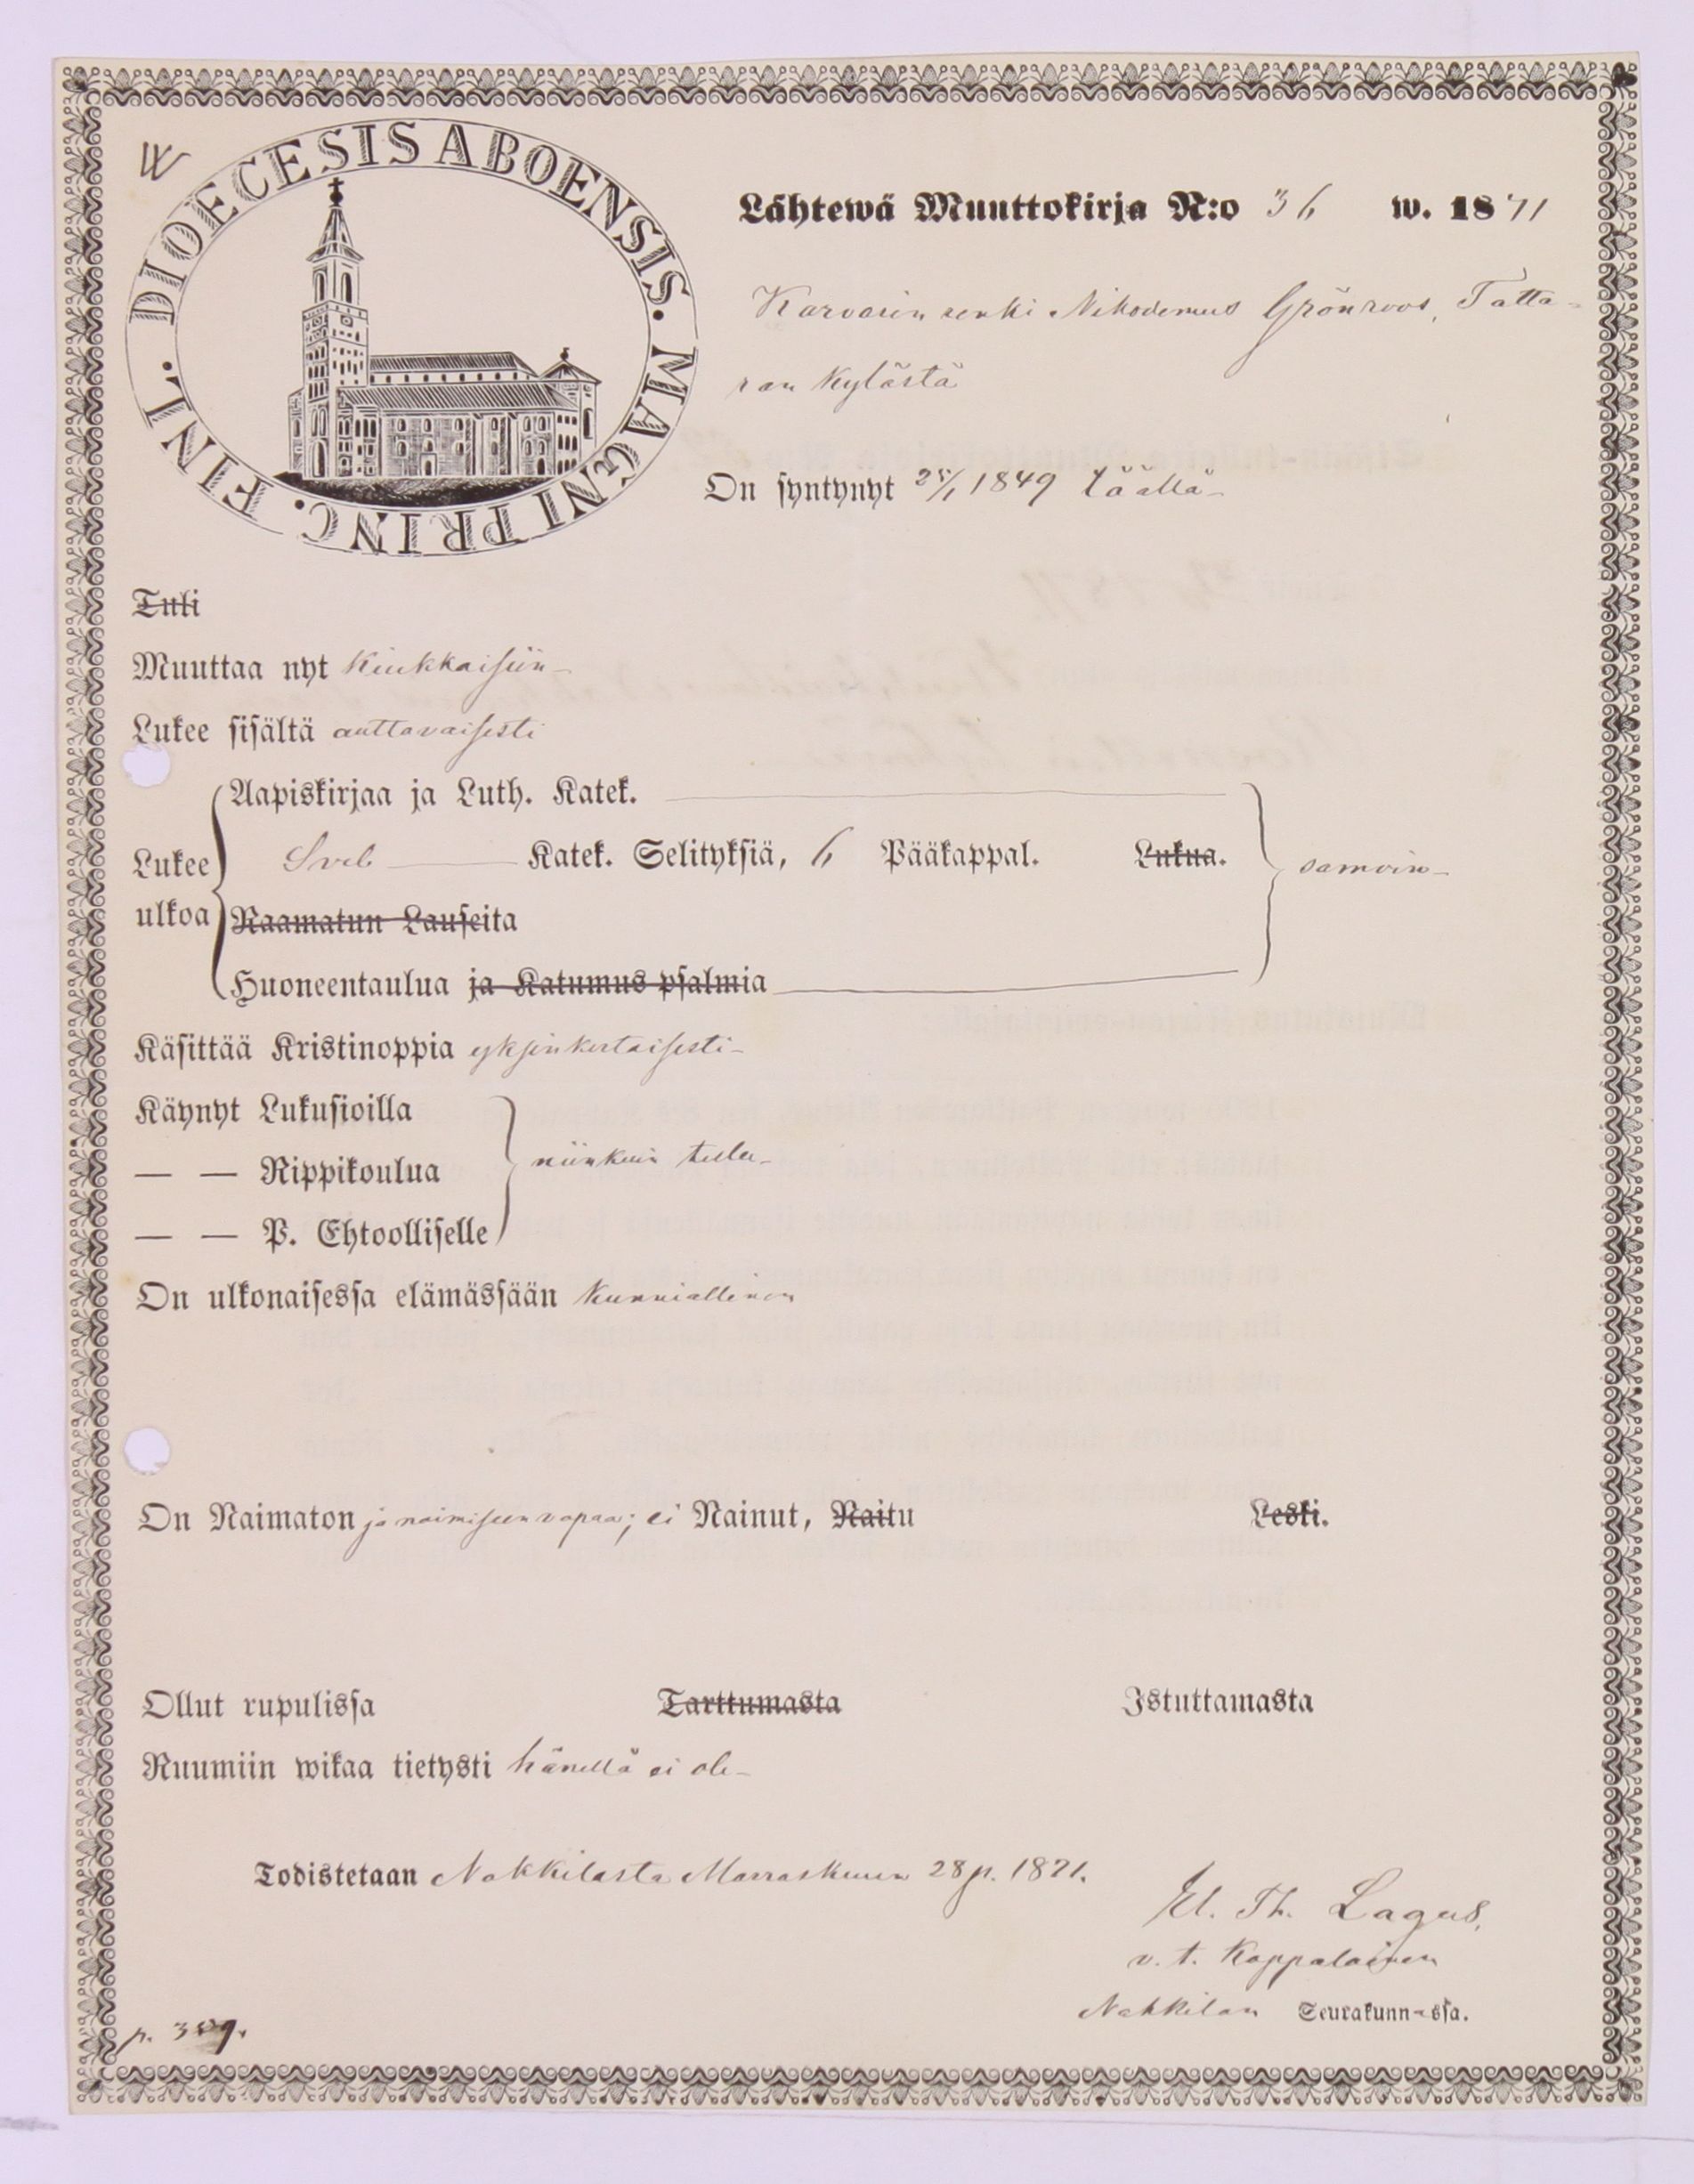 DIOECESIS ABOENSIS. MAGNI PRINC. FINL.
Lähtewä Muuttokirja N:o 36 w. 1871
Karvarin renki Nikodemus Grönroos, Tatta-
ran kylästä
On syntynyt 25/1 1849 täällä
Tuli
Muuttaa nyt Kiukkaisiin
Lukee sisältä auttavaisesti
Aapiskirjaa ja Luth. Katek.
Lukee ulkoa
Sveb Katek. Selityksiä, 6 Pääkappal. Lukua. samoin
Raamatun Lauseita
Huoneentaulua ja Katumus psalmia
Käsittää Kristinoppia yksinkertaisesti
Käynyt Lukusioilla
— — Rippikoulua niinkuin tulee
— — P. Ehtoolliselle
On ulkonaisessa elämässään kunniallinen
On Naimaton ja naimiseen vapaa; ei Nainut, Naitu Leski.
Ollut rupulissa Tarttumasta Istuttamasta
Ruumiin wikaa tietysti hänellä ei ole
Todistetaan Nakkilasta Marraskuun 28 p. 1871.
Th. Lagus,
v. t. Kappalainen
Nakkilan Seurakunnassa.